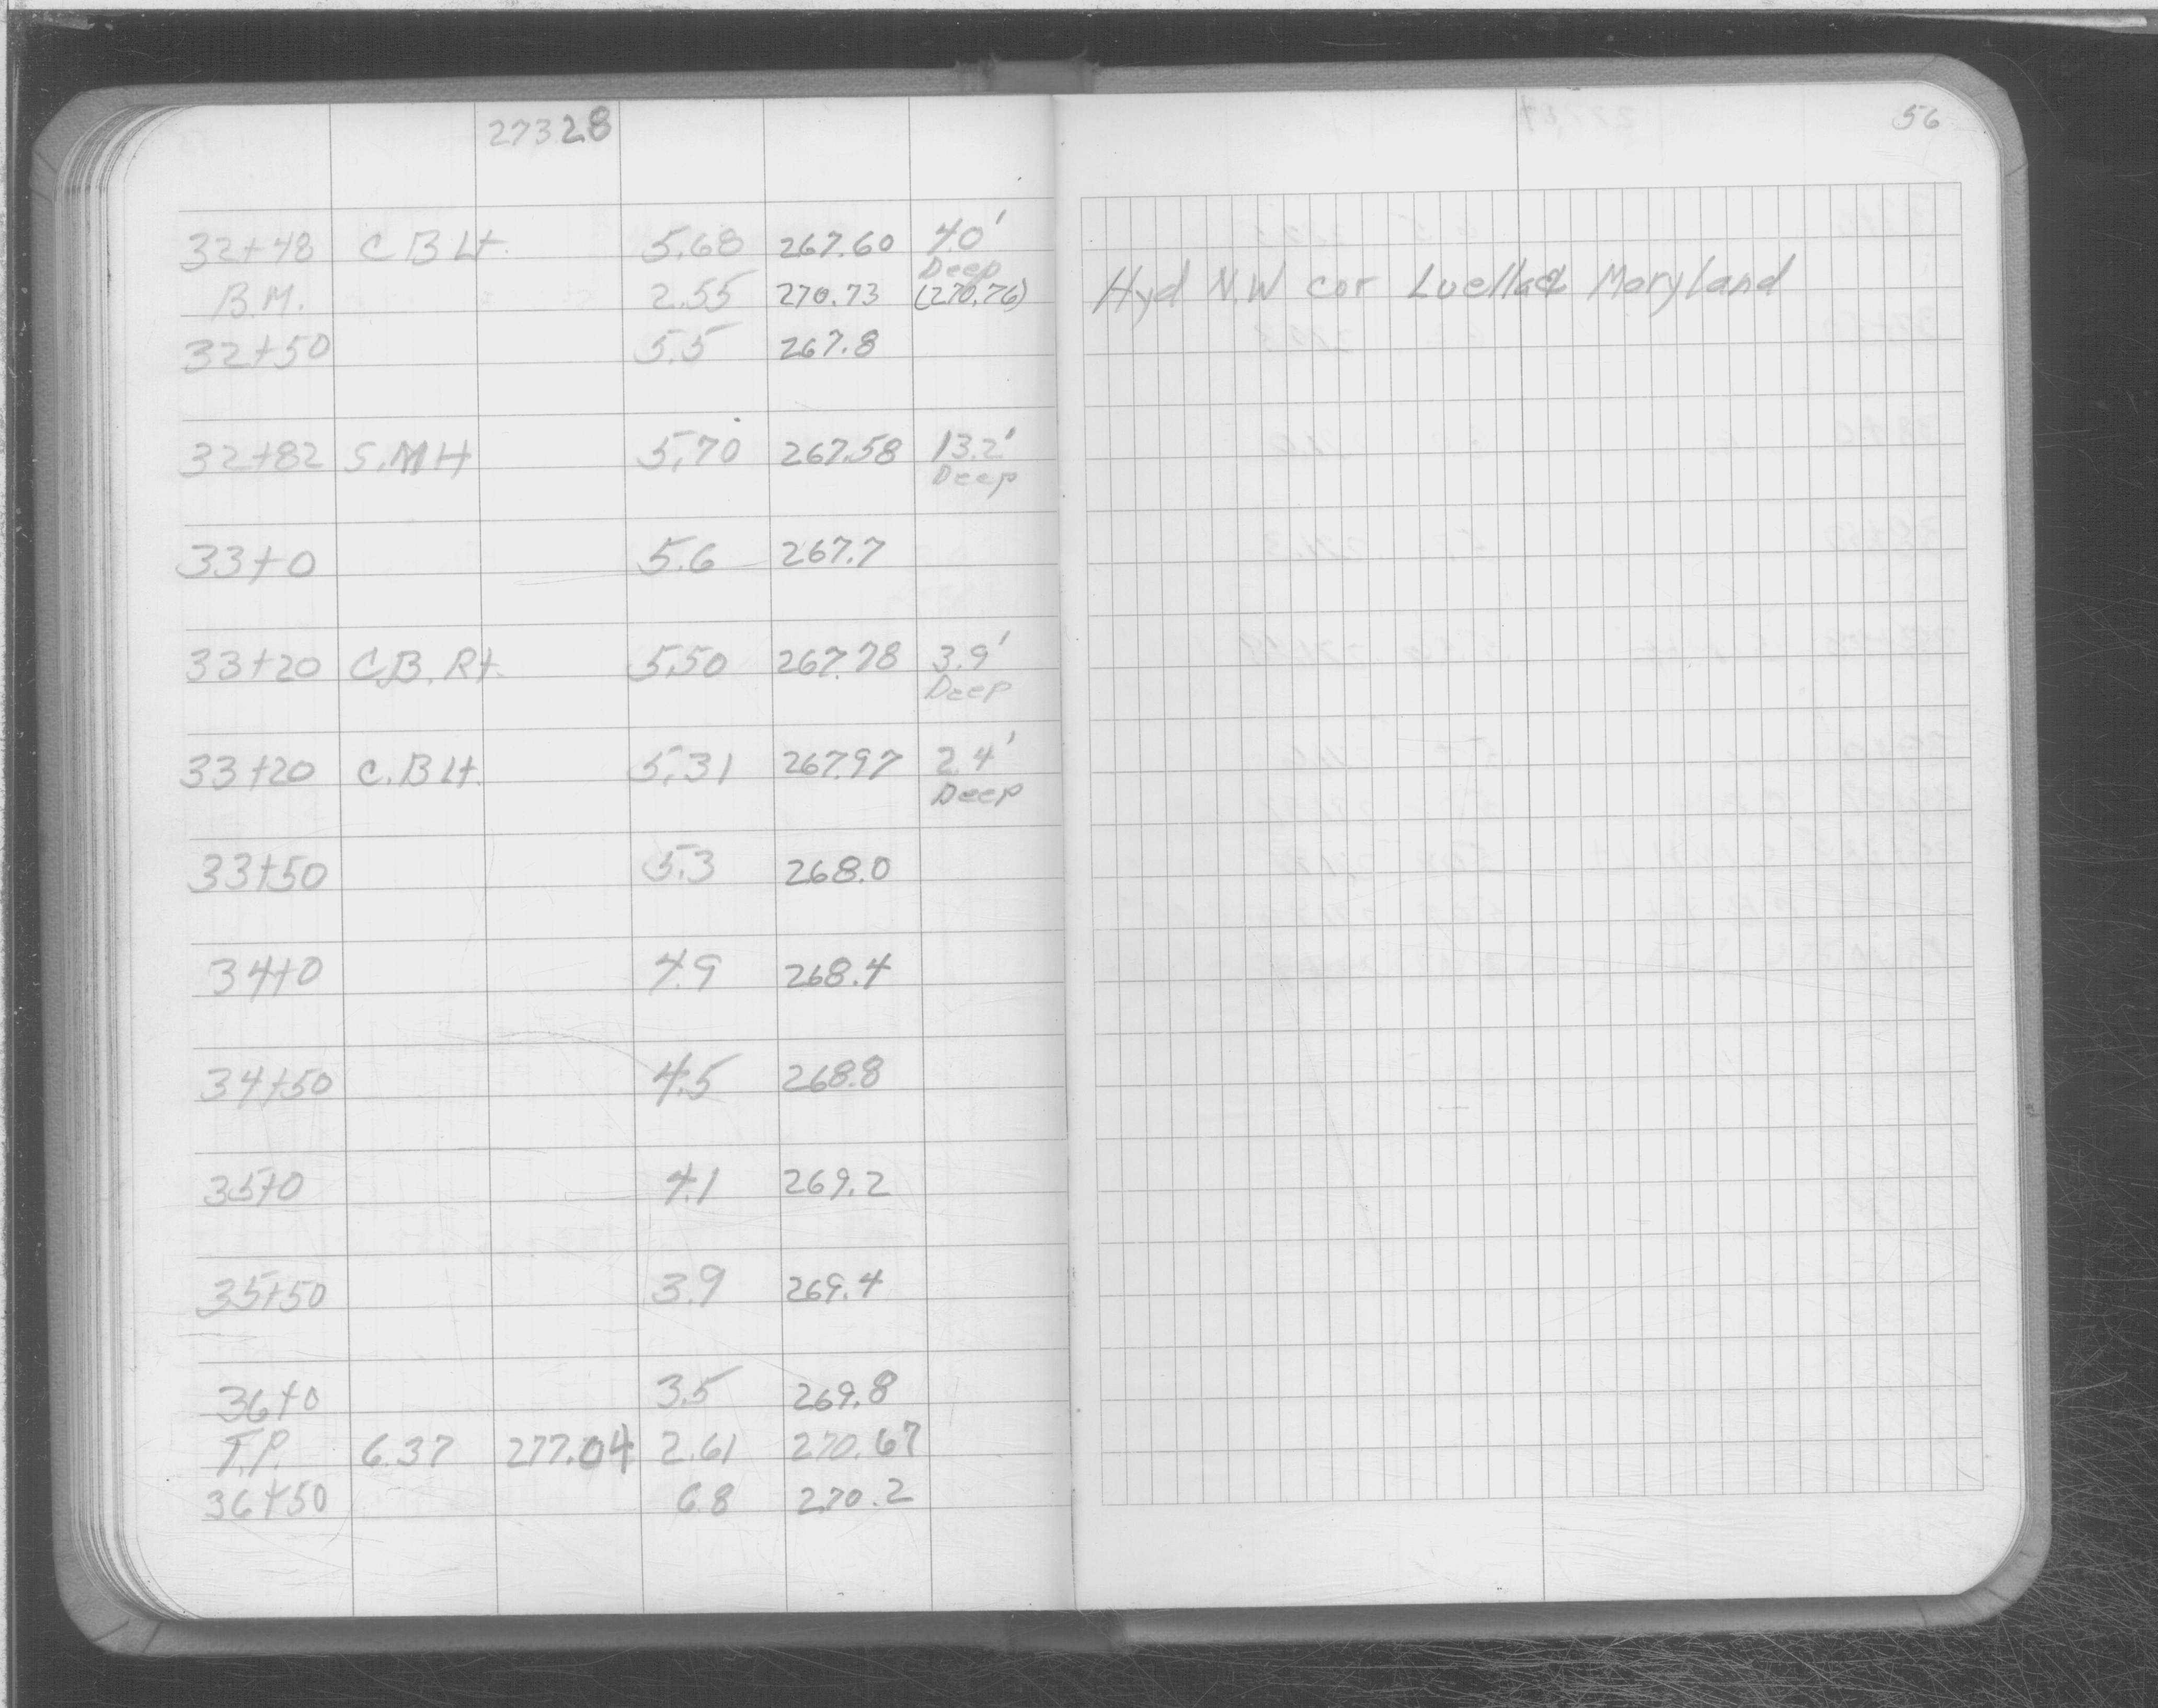 273.28
56
32+48 C B Lt. 5.68 267.60 40'
Deep
B M. 2.55 270.73 (270.76) Hyd N.W cor Luella & Maryland
32+50 5.5 267.8
32+82 S.M H 5.70 267.58 13.2'
Deep
33+0 5.6 267.7
33+20 C.B. Rt. 5.50 267.78 3.9'
Deep
33+20 C.B Lt. 5.31 267.97 2.4'
Deep
33+50 5.3 268.0
34+0 4.9 268.4
34+50 4.5 268.8
35+0 4.1 269.2
35+50 3.9 269.4
36+0 3.5 269.8
T.P. 6.37 277.04 2.61 270.67
36+50 6.8 270.2